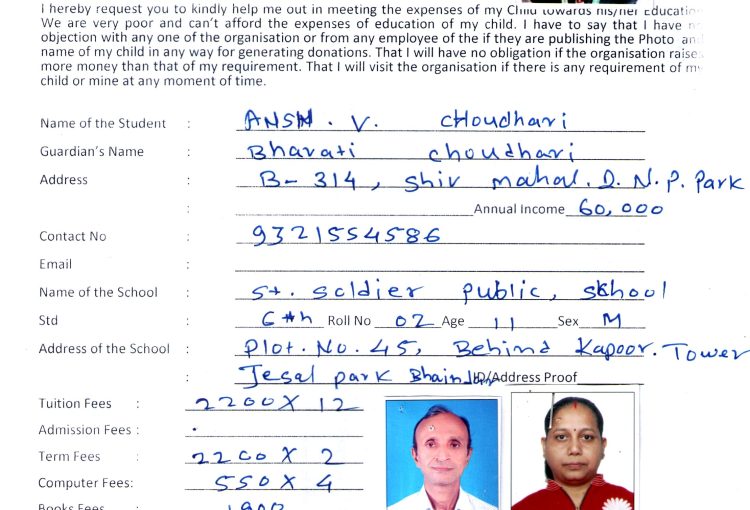 I hereby request you to kindly help me out in meeting the expenses of my Child towards his/her Education
We are very poor and can't afford the expenses of education of my child. I have to say that I have no
objection with any one of the organisation or from any employee of the if they are publishing the Photo and
name of my child in any way for generating donations. That I will have no obligation if the organisation raise
more money than that of my requirement. That I will visit the organisation if there is any requirement of my
child or mine at any moment of time.
Name of the Student : ANSH . V. CHoudhari
Guardian's Name : Bharati choudhari
Address : B-314, shiv mahal. D. N. P. Park
: Annual Income 60,000
Contact No : 9321554586
Email :
Name of the School : st. soldier public, school
Std : 6th Roll No 02 Age 11 Sex M
Address of the School : Plot. No. 45, Behind Kapoor. Tower
: Jesal park Bhainder ID/Address Proof
Tuition Fees : 2200 X 12
Admission Fees :
Term Fees : 2200 X 2
Computer Fees: 550 X 4
Books Fees